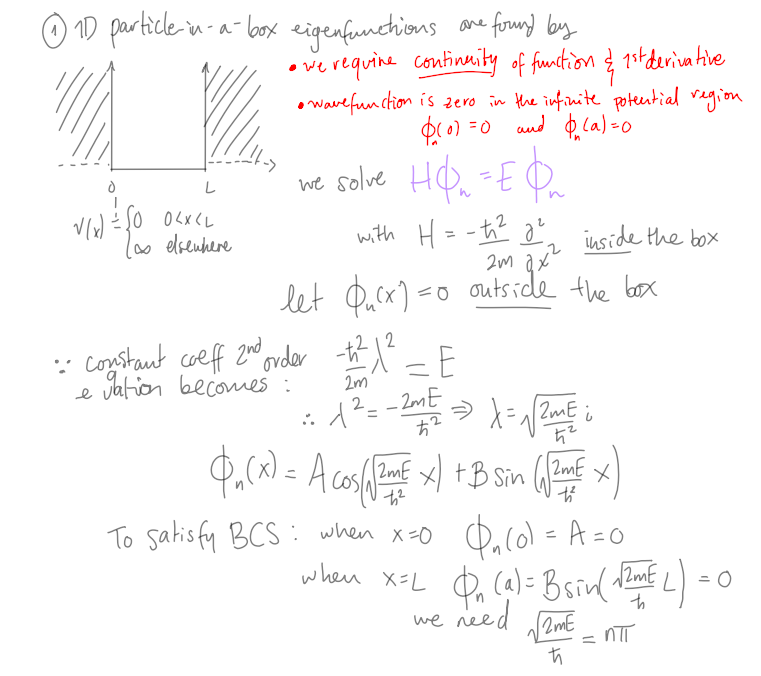 ① 1D particle-in-a-box eigenfunctions are found by
• we require continuity of function & 1st derivative
• wavefunction is zero in the infinite potential region
ϕₙ(0)=0 and ϕₙ(a)=0
0 L
V(x) = {0 0<x<L
{∞ elsewhere
we solve Hϕₙ = Eϕₙ
with H = -ħ²/2m ∂²/∂x² inside the box
let ϕₙ(x) = 0 outside the box
∵ constant coeff 2nd order -ħ²/2m λ² = E
equation becomes:
∴ λ² = -2mE/ħ² ⇒ λ = √(2mE/ħ²) i
ϕₙ(x) = A cos(√(2mE/ħ²) x) + B sin(√(2mE/ħ²) x)
To satisfy BCS: when x=0 ϕₙ(0) = A = 0
when x=L ϕₙ(a) = B sin(√2mE/ħ L) = 0
we need √2mE/ħ = nπ